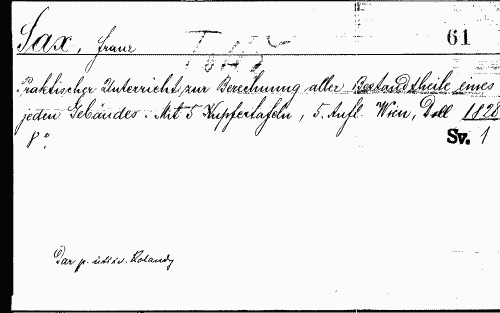 Sax, Franz 61
Praktischer Unterricht zur Berechnung aller Bestandtheile eines
jeden Gebäudes. Mit 5 Kupfertafeln, 5. Aufl. Wien, Doll 1828
8°. Sv. 1
Dar p.